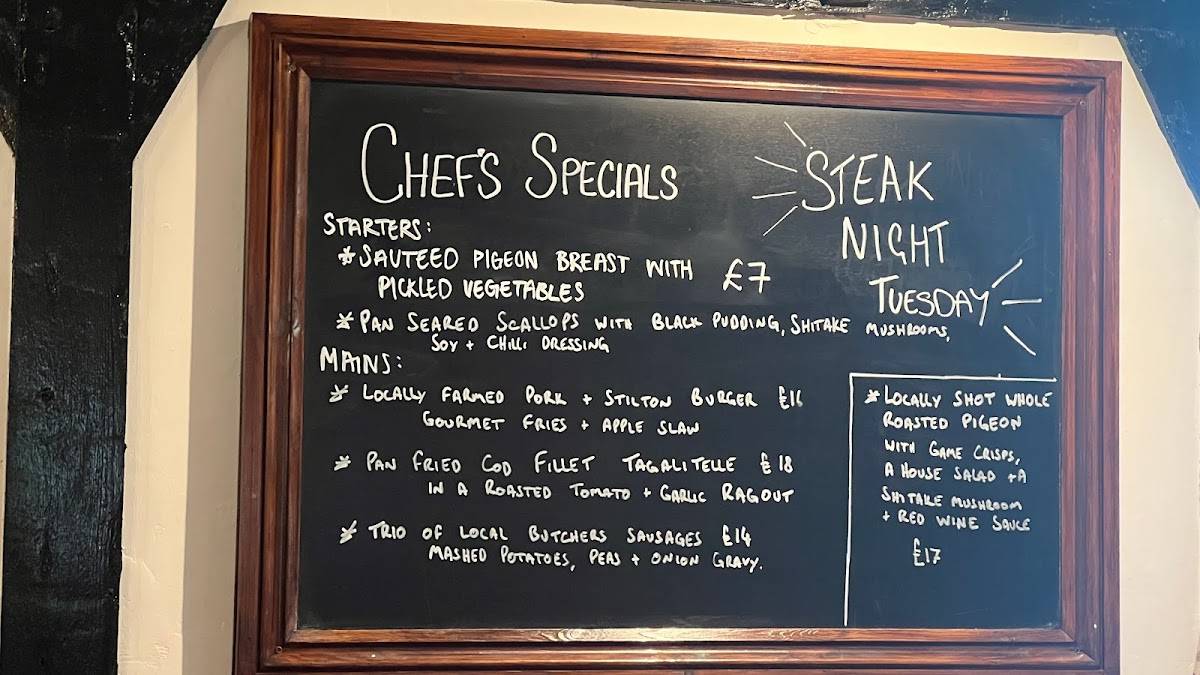 CHEF'S SPECIALS
STARTERS:
* SAUTEED PIGEON BREAST WITH £7
PICKLED VEGETABLES
* PAN SEARED SCALLOPS WITH BLACK PUDDING, SHITAKE MUSHROOMS,
SOY + CHILLI DRESSING
MAINS:
* LOCALLY FARMED PORK + STILTON BURGER £16
GOURMET FRIES + APPLE SLAW
* PAN FRIED COD FILLET TAGALITELLE £18
IN A ROASTED TOMATO + GARLIC RAGOUT
* TRIO OF LOCAL BUTCHERS SAUSAGES £14
MASHED POTATOES, PEAS + ONION GRAVY.
STEAK
NIGHT
TUESDAY
* LOCALLY SHOT WHOLE
ROASTED PIGEON
WITH GAME CRISPS,
A HOUSE SALAD + A
SHITAKE MUSHROOM
+ RED WINE SAUCE
£17